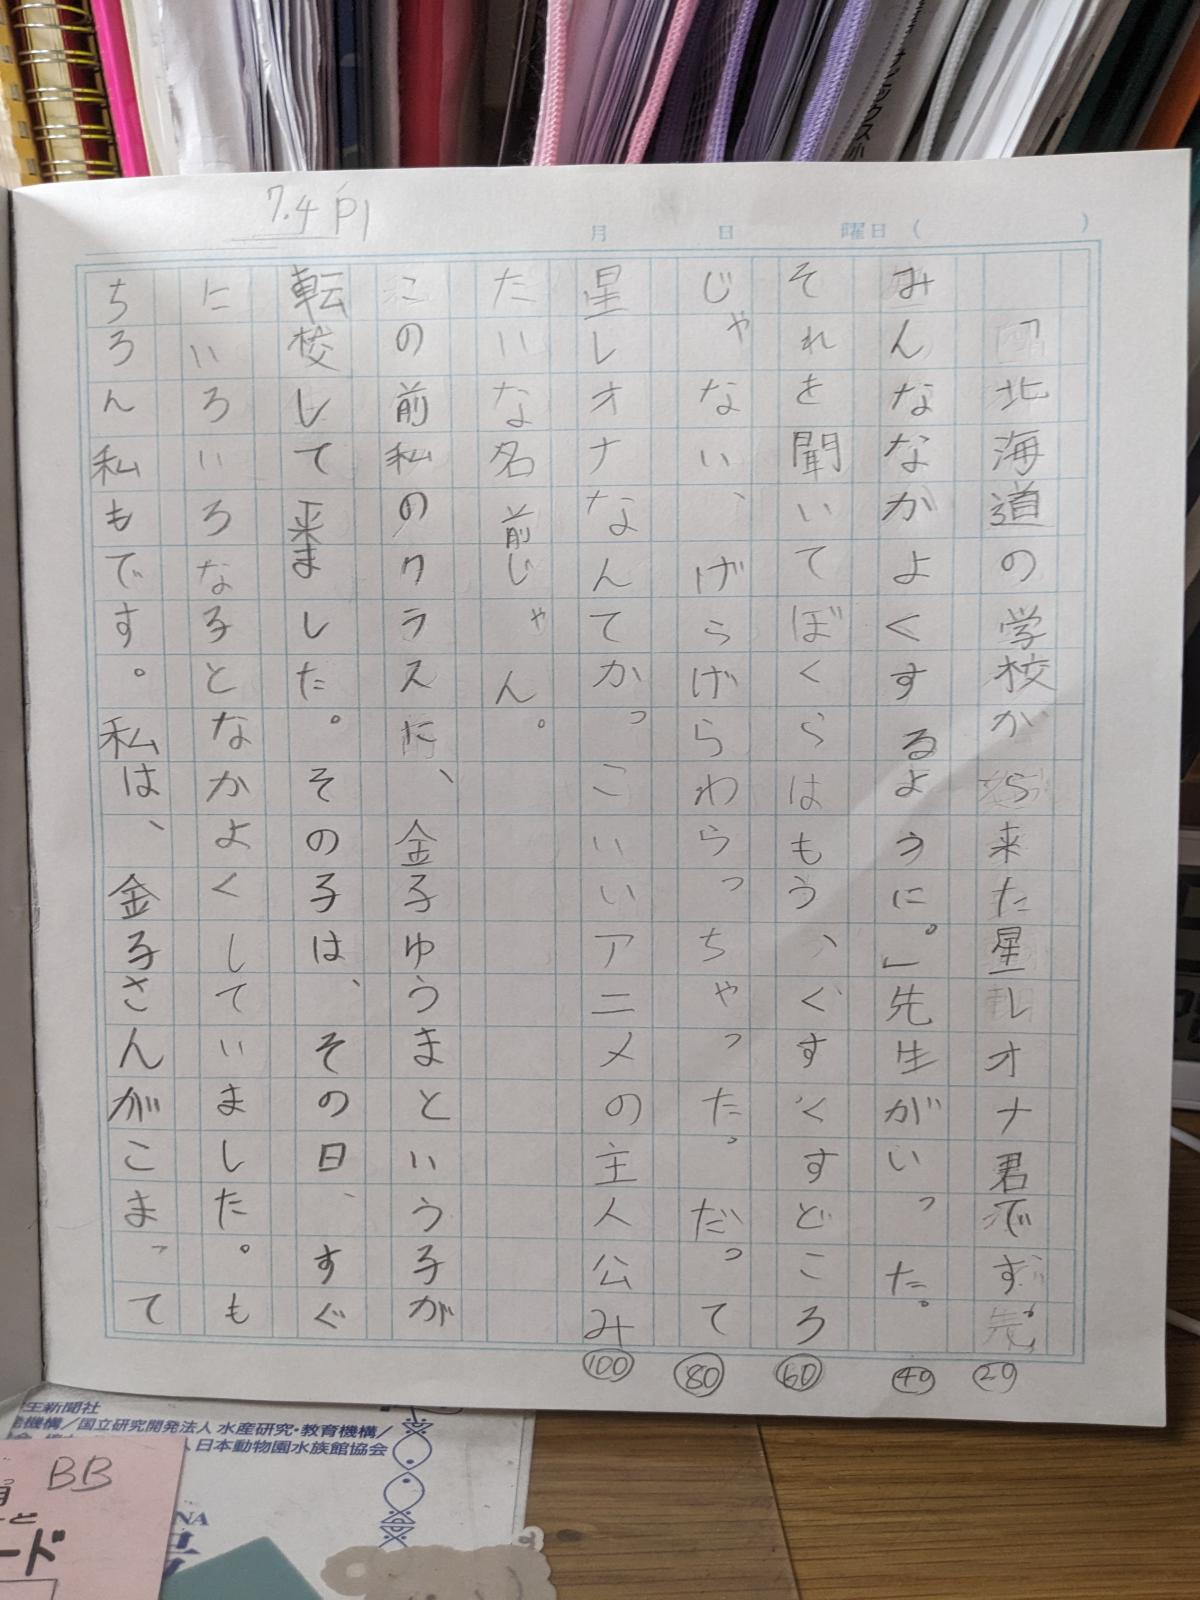 7.4 P1
月 日 曜日( )
「北海道の学校から来た星レオナ君です。
みんななかよくするように。」先生がいった。
それを聞いてぼくらはもう、くすくすどころ
じゃない、げらげらわらっちゃった。だって
星レオナなんてかっこいいアニメの主人公み
たいな名前じゃん。
この前私のクラスに、金子ゆうまという子が
転校して来ました。その子は、その日、すぐ
にいろいろな子となかよくしていました。も
ちろん私もです。私は、金子さんがこまって
100 80 60 40 20
生新聞社
機構/国立研究開発法人 水産研究・教育機構/
日本動物園水族館協会
BB
ード